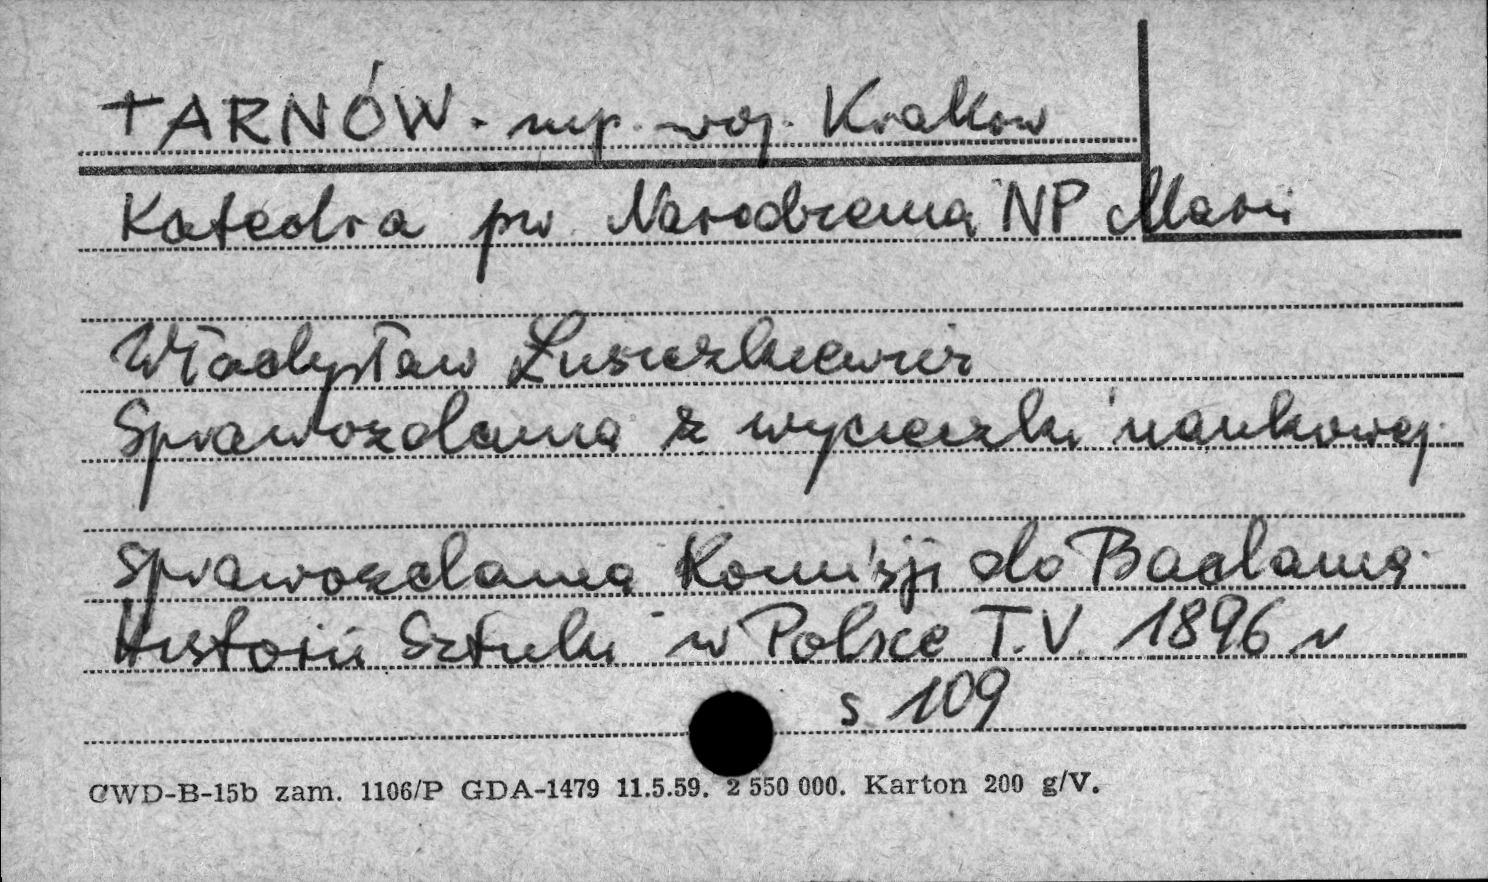 TARNÓW. mp. woj. Kraków
Katedra pw. Narodzenia NP Marii
Władysław Łuszczkiewicz
Sprawozdania z wycieczki naukowej.
Sprawozdania Komisji do Badania
Historii Sztuki w Polsce T.V. 1896 r
s 109
CWD-B-15b zam. 1106/P GDA-1479 11.5.59. 2 550 000. Karton 200 g/V.